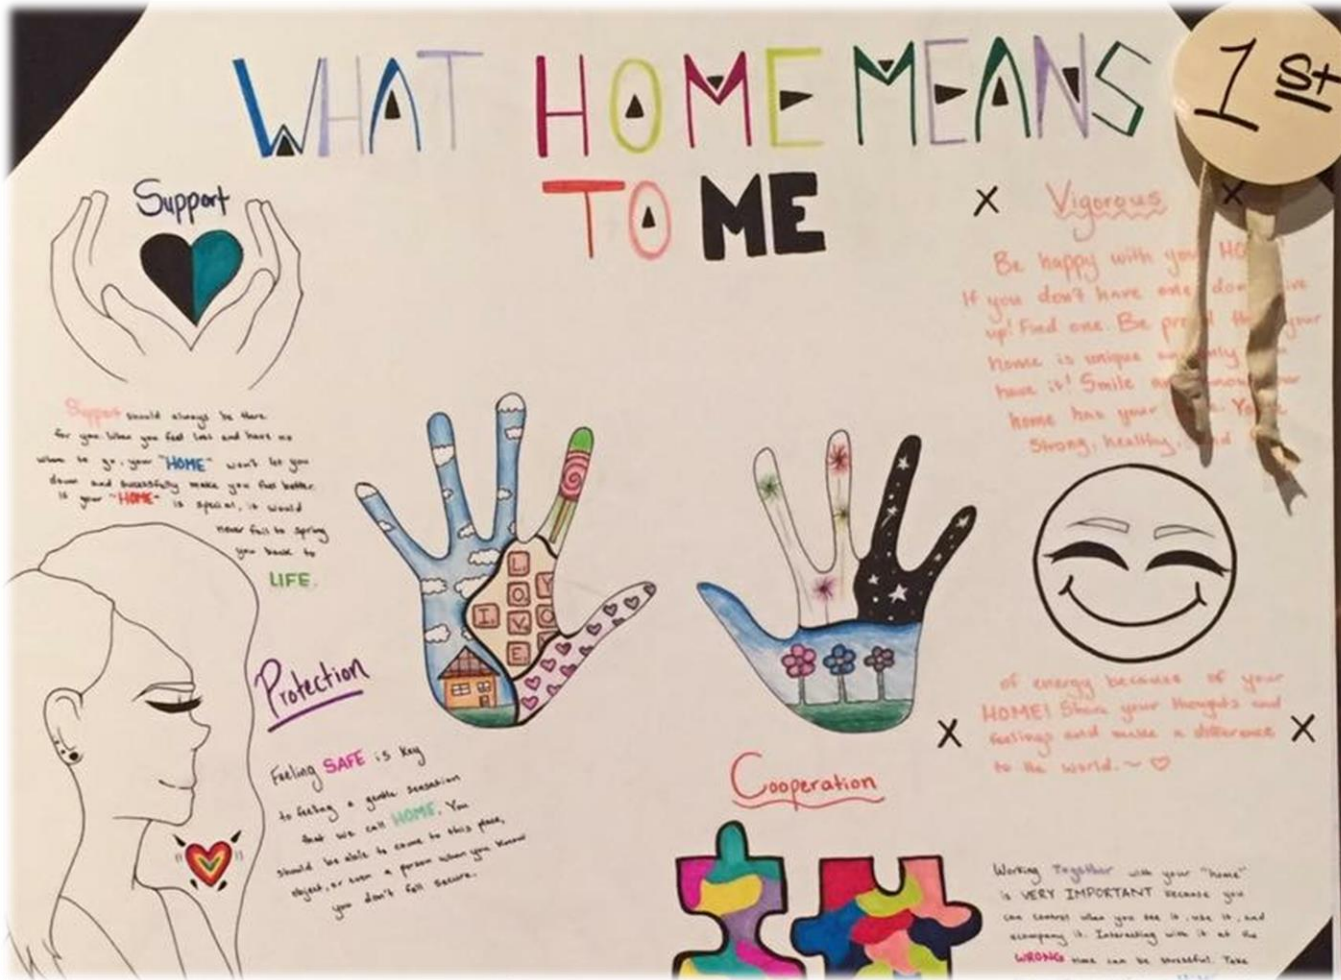 WHAT HOME MEANS
TO ME
1st
Support
Support should always be there
for you. When you feel lost and have no
where to go, your "HOME" won't let you
down and successfully make you feel better.
If your "HOME" is special, it would
never fail to spring
you back to
LIFE.
Protection
Feeling SAFE is key
to feeling a gentle sensation
that we call HOME. You
should be able to come to this place,
object, or even a person when you know
you don't fell secure.
I LOVE YO
Vigorous
Be happy with your HO
If you don't have one, don't give
up! Find one. Be proud that your
home is unique and only
have it! Smile
home has your
Strong, healthy,
of energy because of your
HOME! Share your thoughts and
feelings and make a difference
to the world. ~ ♡
Cooperation
Working Together with your "home"
is VERY IMPORTANT because you
can control when you see it, use it, and
accompany it. Interacting with it at the
WRONG time can be stressful. Take